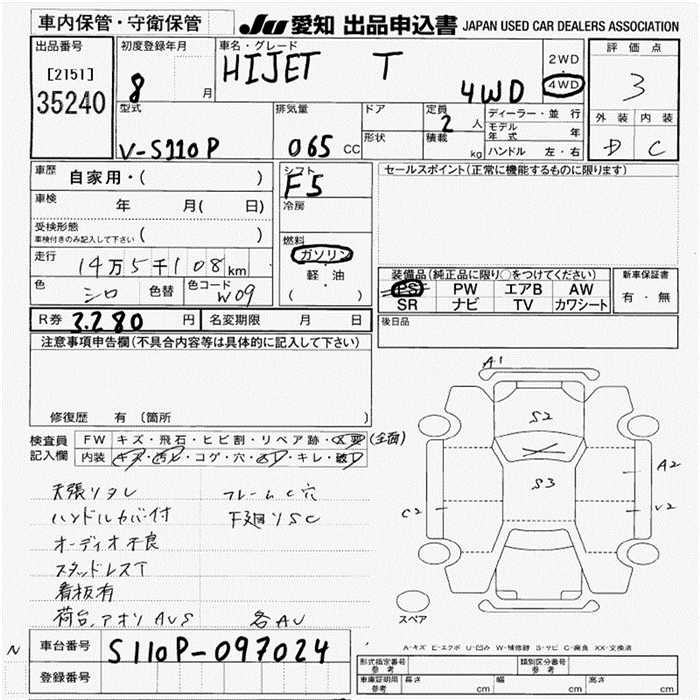 車内保管・守衛保管
JU 愛知 出品申込書 JAPAN USED CAR DEALERS ASSOCIATION
出品番号 [2151] 35240
初度登録年月 8 月
車名・グレード HIJET T 4WD
2WD
4WD
評価点 3
外装 内装
D C
型式 V-S110P
排気量 065 CC
ドア
形状
定員 2 人
積載 kg
ディーラー・並行
モデル年式 年
ハンドル 左・右
車歴 自家用・( )
車検 年 月( 日)
受検形態 ( )
車検付きのみ記入して下さい
走行 14万5千108km
色 シロ 色替 色コード W09
シフト F5
冷房
燃料
ガソリン
軽・油
( ・ )
セールスポイント(正常に機能するものに限ります)
装備品(純正品に限り○をつけてください)
PS PW エアB AW
SR ナビ TV カワシート
新車保証書
有・無
後日品
R券 3.280 円 名変期限 月 日
注意事項申告欄(不具合内容等は具体的に記入して下さい)
修復歴 有 (箇所 )
検査員記入欄
FW キズ・飛石・ヒビ割・リペア跡・X要 (全面)
内装 キズ・汚レ・コゲ・穴・スレ・キレ・破レ
天張リタレ フレームC穴
ハンドルカバー付 下廻りSC
オーディオ不良
スタッドレスT
看板有
荷台.アオリAUS 各AU
A1
S2
S3
A2
C2
V2
スペア
A-キズ E-エクボ U-凹み W-補修跡 S-サビ C-腐食 XX-交換済
N 車台番号 S110P-097024
登録番号
形式指定番号 参考 類別区分番号 参考
車庫証明用 参考 長さ cm 幅 cm 高さ cm